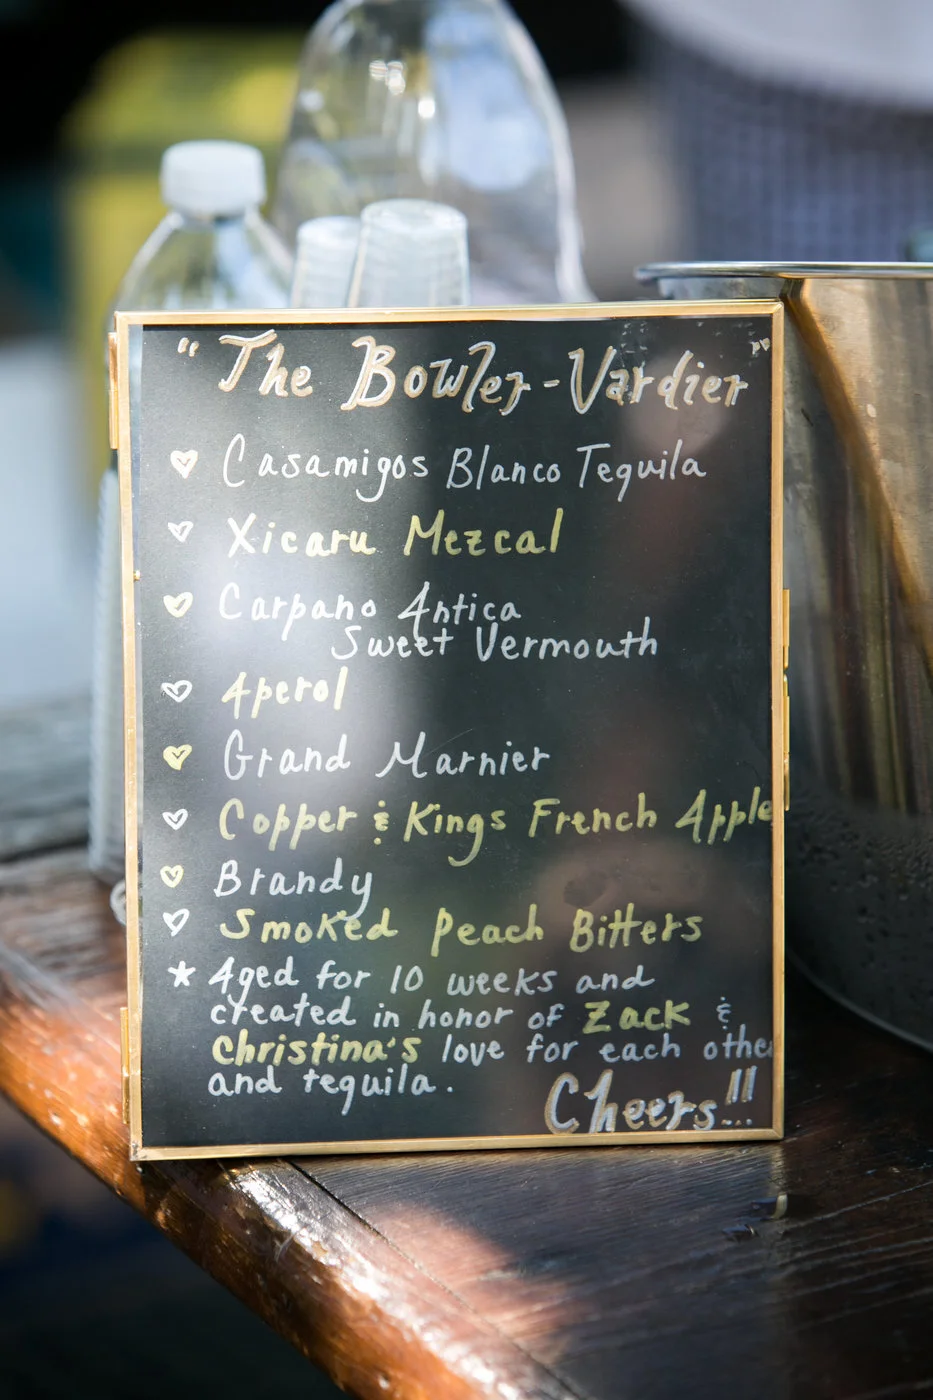 "The Bowler-Vardier"
♥ Casamigos Blanco Tequila
♥ Xicaru Mezcal
♥ Carpano Antica
Sweet Vermouth
♥ Aperol
♥ Grand Marnier
♥ Copper & Kings French Apple
♥ Brandy
♥ Smoked Peach Bitters
* Aged for 10 weeks and
created in honor of Zack &
Christina's love for each other
and tequila.
Cheers!!